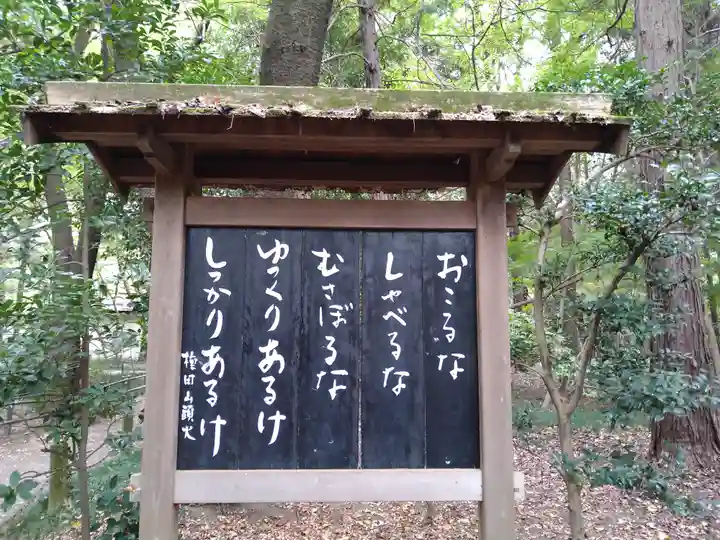 おこるな
しゃべるな
むさぼるな
ゆっくりあるけ
しっかりあるけ
種田山頭火